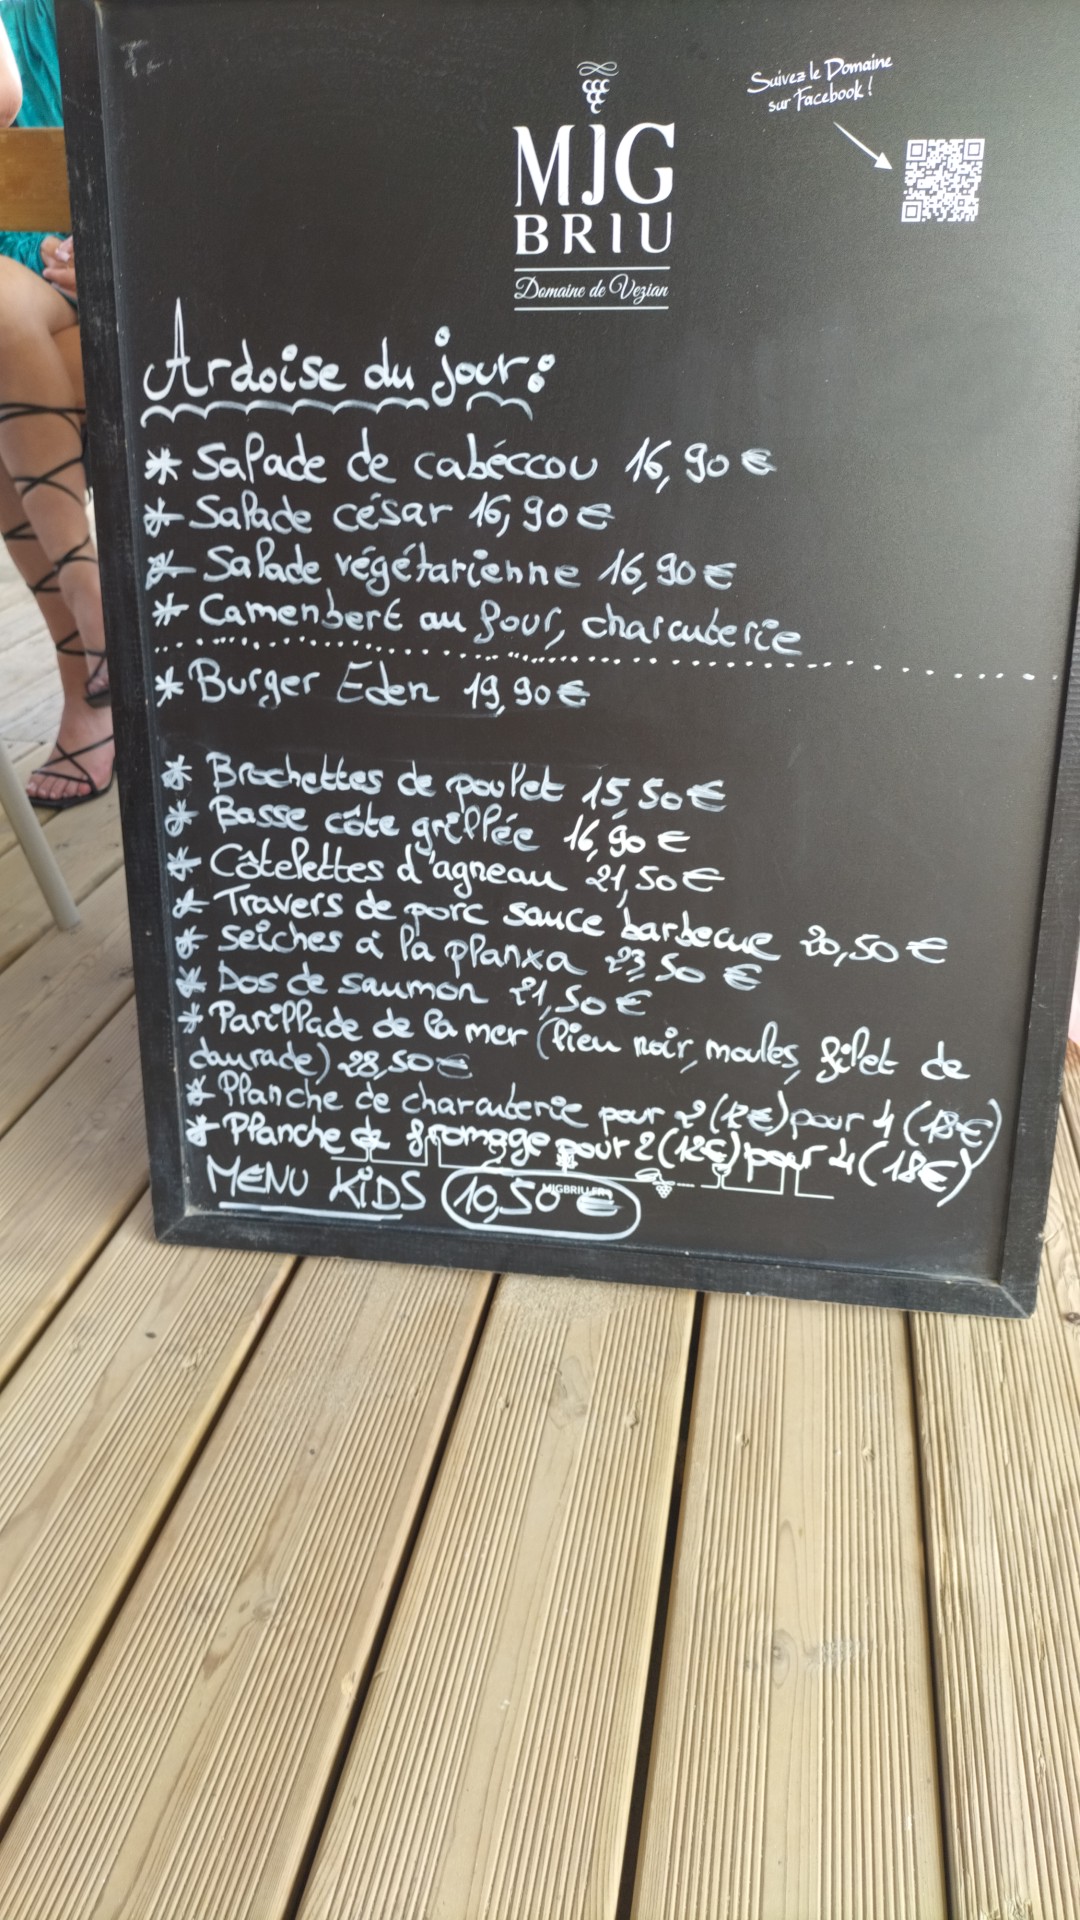 Suivez le Domaine
sur Facebook !
MJG
BRIU
Domaine de Vezian
Ardoise du jour :
* Salade de cabéccou 16,90 €
* Salade césar 16,90 €
* Salade végétarienne 16,90 €
* Camenbert au four, charcuterie
* Burger Eden 19,90 €
* Brochettes de poulet 15,50 €
* Basse côte grillée 16,90 €
* Côtelettes d'agneau 21,50 €
* Travers de porc sauce barbecue 20,50 €
* seiches à la planxa 23,50 €
* Dos de saumon 21,50 €
* Parillade de la mer (lieu noir, moules, filet de
daurade) 28,50 €
* Planche de charcuterie pour 2 (12€) pour 4 (18€)
* Planche de fromage pour 2 (12€) pour 4 (18€)
MENU KiDS 10,50 €